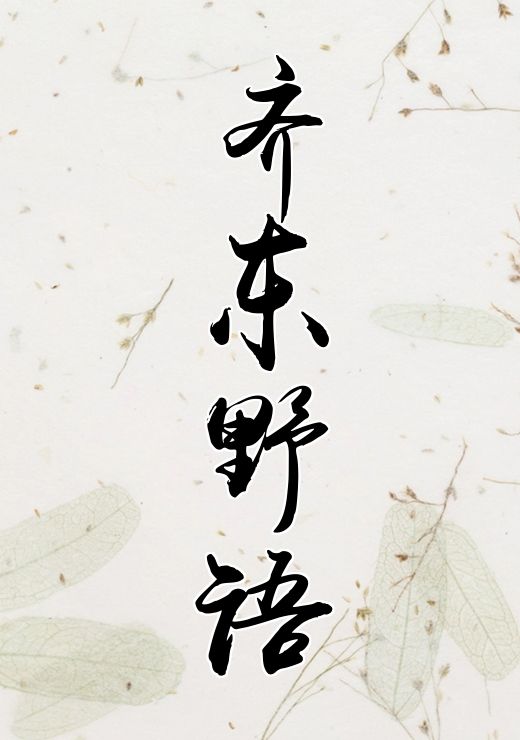 齐东野语